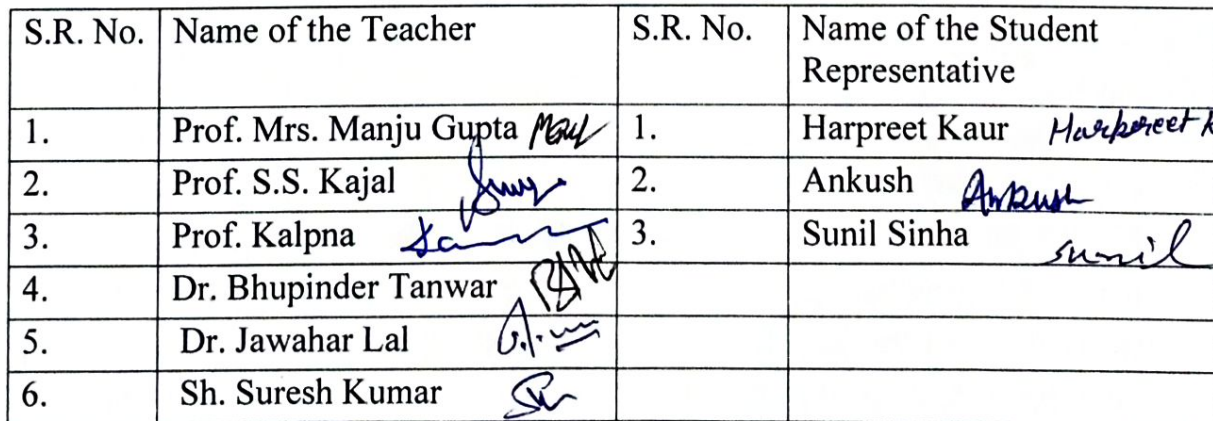 S.R. No. Name of the Teacher S.R. No. Name of the Student
Representative
1. Prof. Mrs. Manju Gupta 1. Harpreet Kaur Harpreet K
2. Prof. S.S. Kajal 2. Ankush Ankush
3. Prof. Kalpna 3. Sunil Sinha sunil
4. Dr. Bhupinder Tanwar
5. Dr. Jawahar Lal
6. Sh. Suresh Kumar